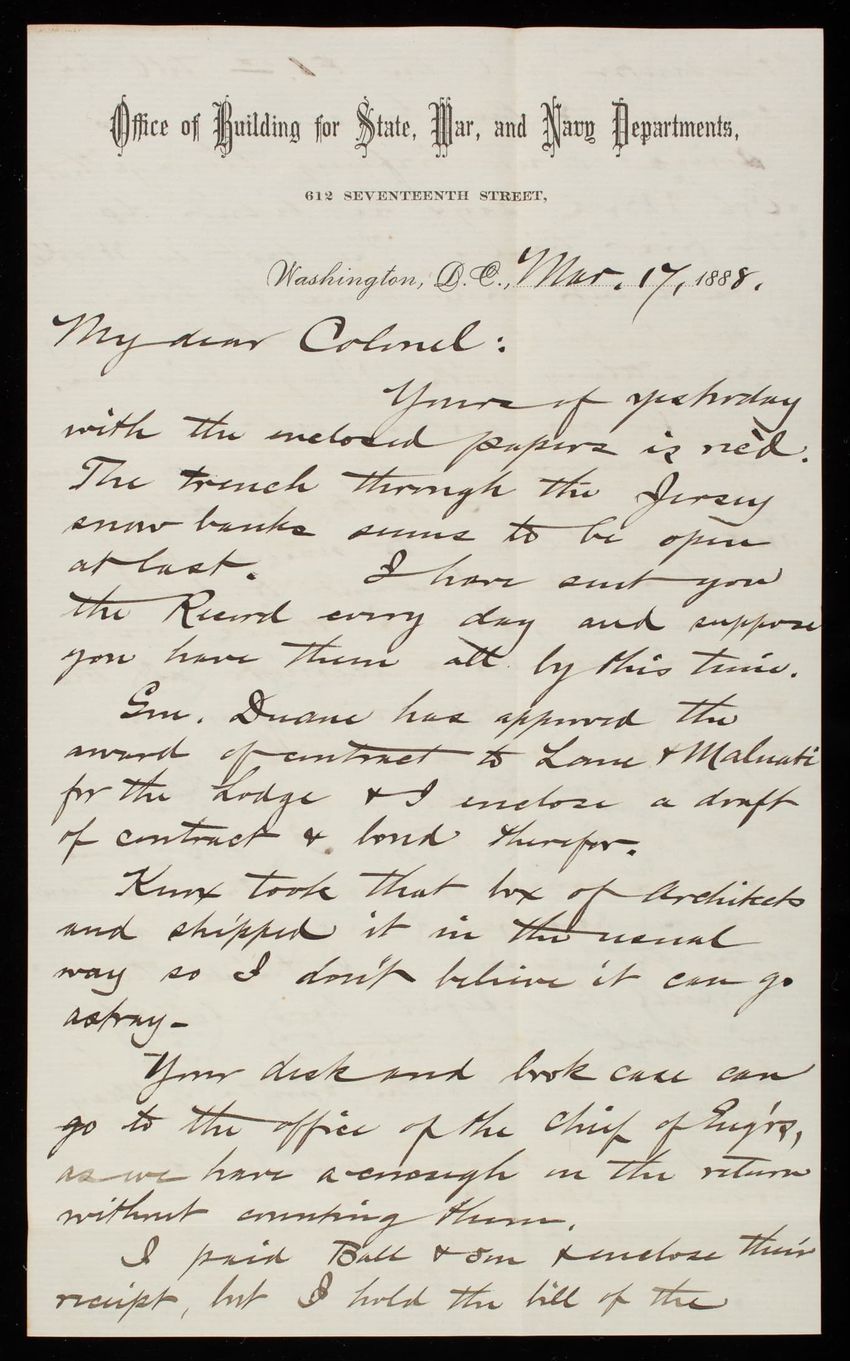 Office of Building for State, War, and Navy Departments,
612 SEVENTEENTH STREET,
Washington, D. C., Mar. 17, 1888.
My dear Colonel:
Yours of yesterday
with the enclosed papers is rec'd.
The trench through the Jersey
snow banks seems to be open
at last. I have sent you
the Record every day and suppose
you have them all by this time.
Gen. Duane has approved the
award of contract to Lane & Malnati
for the Lodge & I enclose a draft
of contract & bond therefor.
Knox took that box of Architects
and shipped it in the usual
way so I don't believe it can go
astray-
Your desk and book case can
go to the office of the Chief of Eng'rs,
as we have enough on the return
without counting them.
I paid Ball & Son & enclose their
receipt, but I hold the bill of the